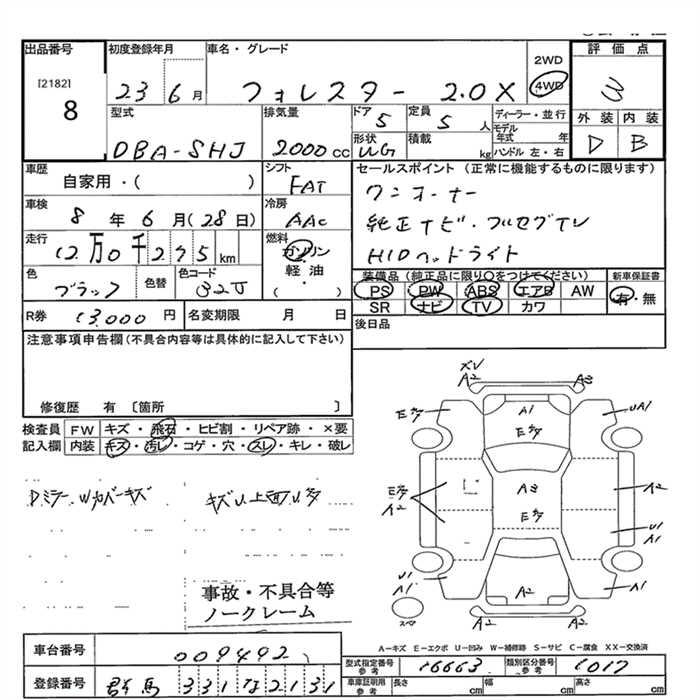 出品番号
[2182]
8
初度登録年月
23 6 月
車名・グレード
フォレスター 2.0X
2WD
4WD
評価点
3
外装 内装
D B
型式
DBA-SHJ
排気量
2000 CC
ドア 5
定員 5 人
形状 UG
積載 kg
ディーラー・並行
モデル年式 年
ハンドル 左・右
車歴
自家用・( )
シフト
FAT
車検
8 年 6 月(28日)
冷房
AAC
走行
12万0千275 km
燃料
ガソリン
軽油
( )
色
ブラック
色替
色コード
32J
R券 13,000 円
名変期限 月 日
セールスポイント(正常に機能するものに限ります)
ワンオーナー
純正ナビ・フルセグTV
HIDヘッドライト
装備品(純正品に限り○をつけてください)
PS PW ABS エアB AW
SR ナビ TV カワ
新車保証書
有・無
後日品
注意事項申告欄(不具合内容等は具体的に記入して下さい)
修復歴 有 〔箇所 〕
検査員記入欄
FW キズ・飛石・ヒビ割・リペア跡・×要
内装 キズ・汚レ・コゲ・穴・スレ・キレ・破レ
DミラーWカバーキズ
キズU上面U多
事故・不具合等
ノークレーム
ズレ
A2
A3
E多
A1
E多
UA1
E多
A2
A3
E多
A2
U1
A1
U1
A1
A1
A2
A2
A2
スペア
A-キズ E-エクボ U-凹み W-補修跡 S-サビ C-腐食 XX-交換済
車台番号 009492
登録番号 群馬 331 な 2131
型式指定番号 参考 16663
類別区分番号 参考 1017
車庫証明用 参考
長さ cm
幅 cm
高さ cm